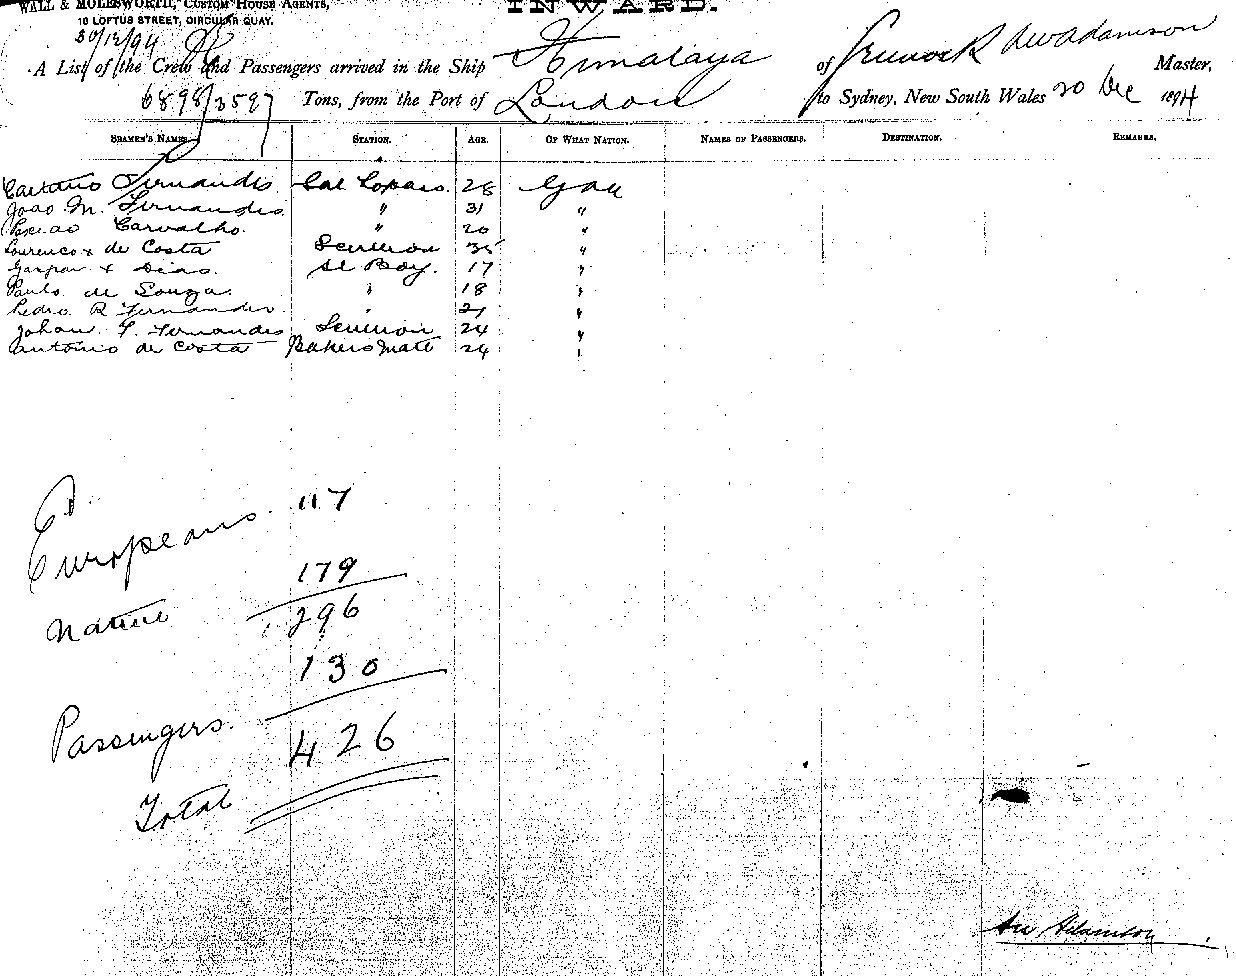 WALL & MOLESWORTH, CUSTOM HOUSE AGENTS,
10 LOFTUS STREET, CIRCULAR QUAY.
INWARD.
30/12/94
A List of the Crew and Passengers arrived in the Ship Himalaya of Greenock A W Adamson Master,
6898/3597 Tons, from the Port of London to Sydney, New South Wales 30 Dec 1894
SEAMEN'S NAMES. STATION. AGE. OF WHAT NATION. NAMES OF PASSENGERS. DESTINATION. REMARKS.
Caetano Fernandis 28 Goa
Joao M. Fernandis " 31 "
Carvalho " 20 "
Lourenco x de Costa 35 "
Gaspar x Dias. Boy. 17 "
Paulo de Souza. " 18 "
Pedro R Fernandis " 21 "
Johan F. Fernandis 24 "
Antonio de Costa Bakers Mate 24 "
Europeans. 117
Native 179
296
Passengers. 130
Total 426
A W Adamson